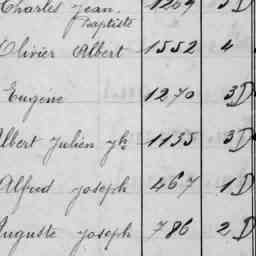 Charles Jean 1269 3 D
Baptiste
Olivier Albert 1552 4
Eugène 1270 3 D
Albert Julien 1135 3 D
Alfred Joseph 467 1 D
Auguste Joseph 786 2 D